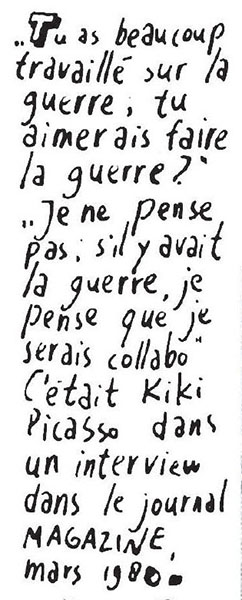 „Tu as beaucoup
travaillé sur la
guerre; tu
aimerais faire
la guerre?"
„Je ne pense
pas; s'il y avait
la guerre, je
pense que je
serais collabo"
C'était Kiki
Picasso dans
un interview
dans le journal
MAGAZINE,
mars 1980.